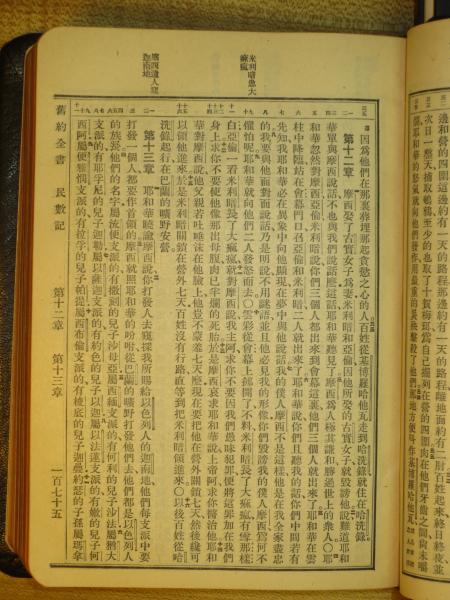 邊和營的四圍這邊約有一天的路程那邊約有一天的路程離地面約有二肘百姓起來終日終夜並
次日一整天捕取鵪鶉至少的也取了十賀梅珥為自己擺列在營的四圍肉在他們牙齒之間尚未嚼
耶和華的怒氣就向他們發作用最重的災殃擊殺了他們那地方便叫作基博羅哈他瓦
因為他們在那裏葬埋那起貪慾之心的人百姓從基博羅哈他瓦走到哈洗錄就住在哈洗錄
第十二章 摩西娶了古實女子為妻米利暗和亞倫因他所娶的古實女子就毀謗他說難道耶和
華單與摩西說話不也與我們說話麼這話耶和華聽見了摩西為人極其謙和勝過世上的衆人〇耶
和華忽然對摩西亞倫米利暗說你們三個人都出來到會幕這裏他們三個人就出來了耶和華在雲
柱中降臨站在會幕門口召亞倫和米利暗二人就出來了耶和華說你們且聽我的話你們中間若有
先知我耶和華必在異象中向他顯現在夢中與他說話我的僕人摩西不是這樣他是在我全家盡忠
的我要與他面對面說話乃是明說不用謎語並且他必見我的形像你們毀謗我的僕人摩西為何不
懼怕呢耶和華就向他們二人發怒而去雲彩從會幕上挪開了不料米利暗長了大痲瘋有雪那樣
白亞倫一看米利暗長了大痲瘋就對摩西說我主阿求你不要因我們愚昧犯罪便將這罪加在我們
身上求你不要使他像那出母腹肉已半爛的死胎於是摩西哀求耶和華說上帝阿求你醫治他耶和
華對摩西說他父親若吐唾沫在他臉上他豈不蒙羞七天麼現在要把他在營外關鎖七天然後纔可
以領他進來於是米利暗關鎖在營外七天百姓沒有行路直等到把米利暗領進來〇以後百姓從哈
洗錄起行在巴蘭的曠野安營
第十三章 耶和華曉諭摩西說你打發人去窺探我所賜給以色列人的迦南地他們每支派中要
打發一個人都要作首領的摩西就照耶和華的吩咐從巴蘭的曠野打發他們去他們都是以色列人
的族長他們的名字屬流便支派的有撒刻的兒子沙母亞屬西緬支派的有何利的兒子沙法屬猶大
支派的有耶孚尼的兒子迦勒屬以薩迦支派的有約色的兒子以迦屬以法蓮支派的有嫩的兒子何
西阿屬便雅憫支派的有拉孚的兒子帕提屬西布倫支派的有梭底的兒子迦疊約瑟的子孫屬瑪拿
米利暗患大
痲瘋
遣人窺
迦南地
舊約全書 民數記 第十二章 第十三章 一百七十五